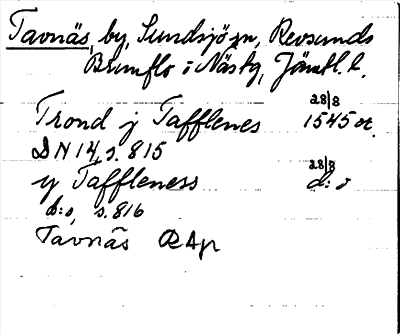 Tavnäs, by, Sundsjö sn, Revsunds
Brunflo o Näs tg, Jämtl. l.
Trond j Tafflenes 28/8 1545 or.
DN 14, s. 815
y Taffleness 28/8 d:o
d:o, s. 816
Tavnäs